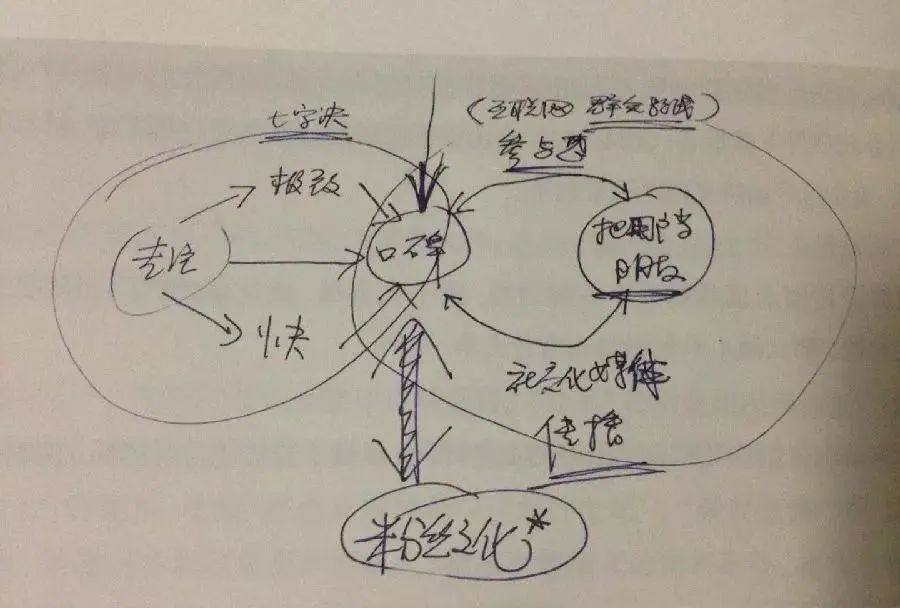 七字决
(互联网 群众路线)
参与感
极致
专注
口碑
把用户当
朋友
快
社交化媒体
传播
粉丝文化*